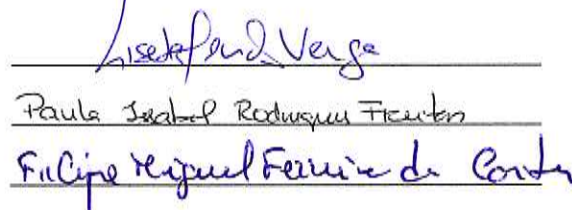 Lisete Verga
Paula Isabel Rodrigues Freitas
Filipe Miguel Ferreira da Costa